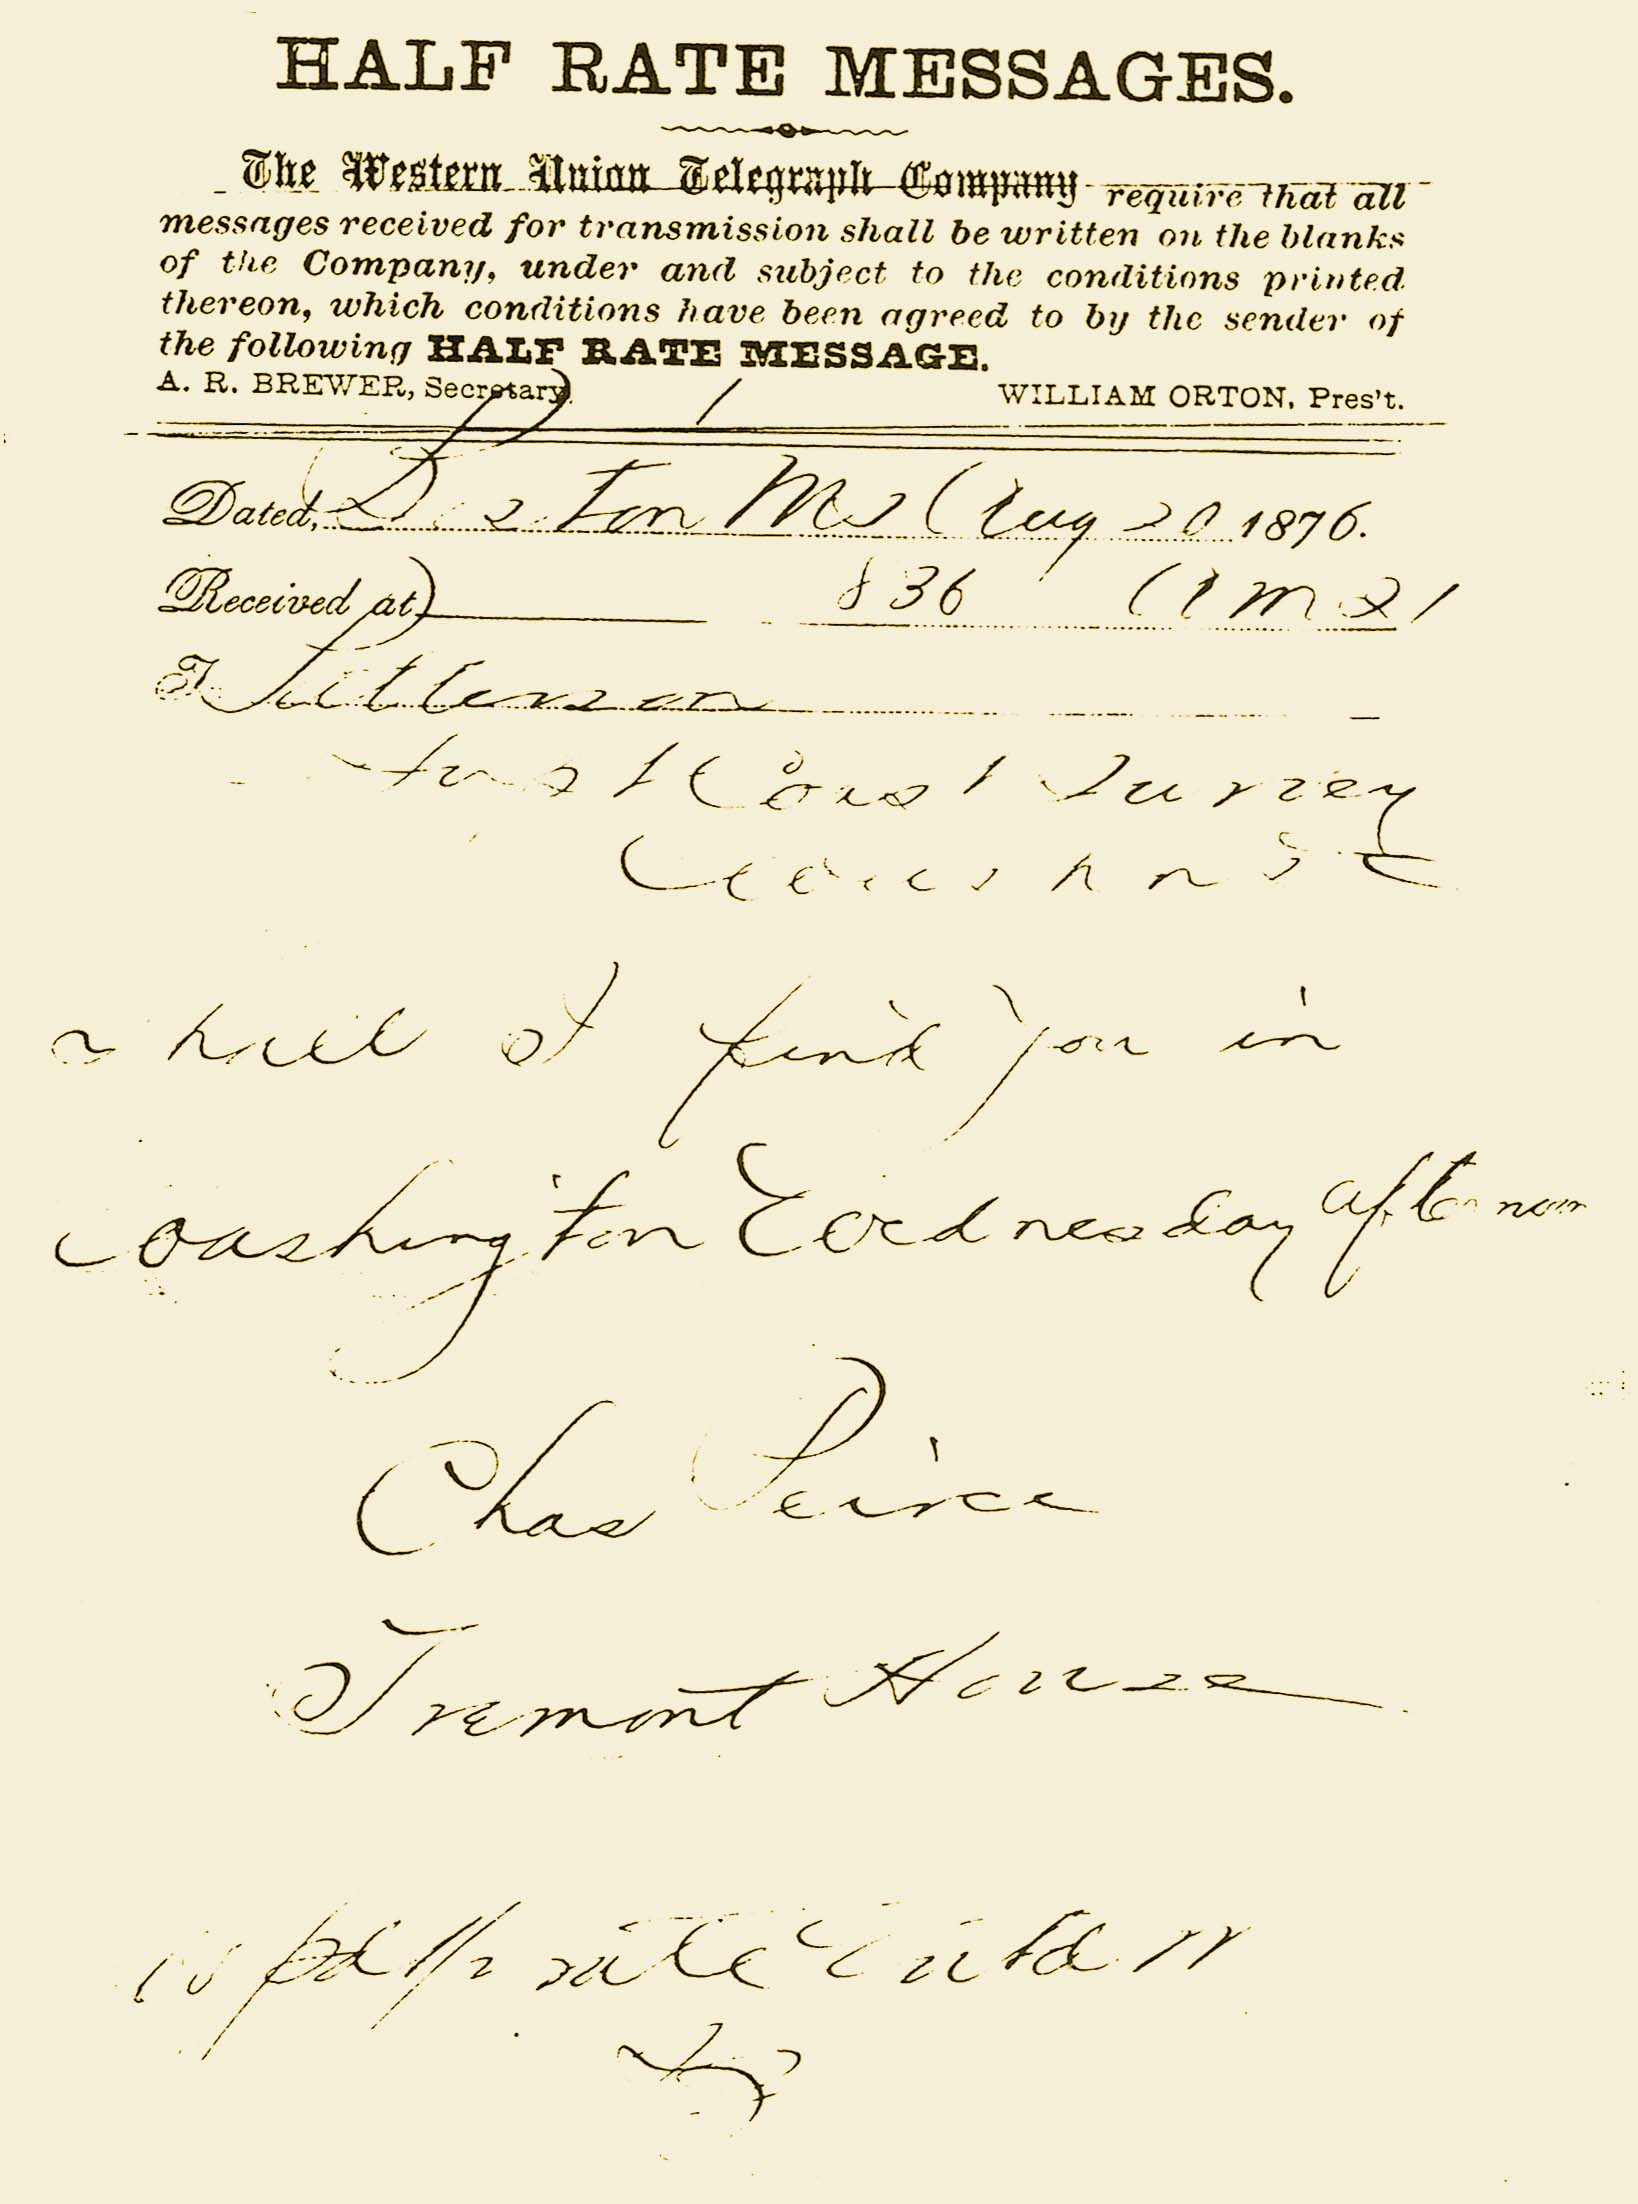 HALF RATE MESSAGES.
The Western Union Telegraph Company require that all
messages received for transmission shall be written on the blanks
of the Company, under and subject to the conditions printed
thereon, which conditions have been agreed to by the sender of
the following HALF RATE MESSAGE.
A. R. BREWER, Secretary. WILLIAM ORTON, Pres't.
Dated, Boston Ms Aug 20 1876.
Received at 836 Am 21
To Patterson
Asst Coast Survey
Washn DC
shall I find you in
Washington Wednesday afternoon
Chas Peirce
Tremont House
pd 1/2 rate